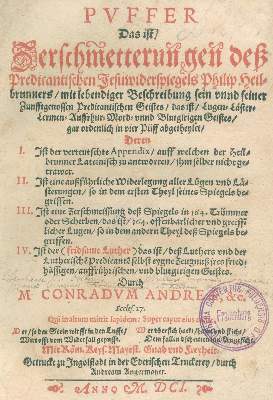 PVFFER
Das ist/
Zerschmetterungen deß
Predicantischen Jesuwiderspiegels Philip Heil-
brunners/ mit lebendiger Beschreibung sein vnnd seiner
Zunfftgenossen Predicantischen Geistes/ das ist/ Lugen- Läster-
Lermen- Auffrhur- Mord- vnnd Blungirigen Geistes/
gar ordenlich in vier Püff abgetheylet/
Deren
I. Ist der vertruckte Appendix/ auff welchen der Heil-
brunner Lateinisch zu antworten/ ihm selber nicht ge-
trawet.
II. Ist eine außführliche Widerlegung aller Lögen vnd Lä-
sterungen/ so in dem ersten Theyl seines Spiegels be-
griffen.
III. Ist eine Zerschmeissung deß Spiegels in 164. Trümmer
oder Scherben/ das ist/ 164. offenbarlicher vnd greifflicher
Lugen/ so in dem andern Theyl deß Spiegels be-
griffen.
IV. Ist der fridsame Luther/ das ist/ deß Luthers vnd der
Lutherisch Predicanten selbst eygne Zeugnuß jres fried-
hässigen/ auffrhürischen/ vnd blutgirigen Geistes.
Durch
M. CONRADVM ANDREAE, &c.
Eccles. 27.
Qui in altum mittit lapidem, super caput eius cadet.
Mit Röm. Key. Mayest. Gnad vnd Freyheit.
Getruckt zu Ingolstadt in der Ederischen Truckerey/ durch
Andream Angermayer.
ANNO M. DCI.